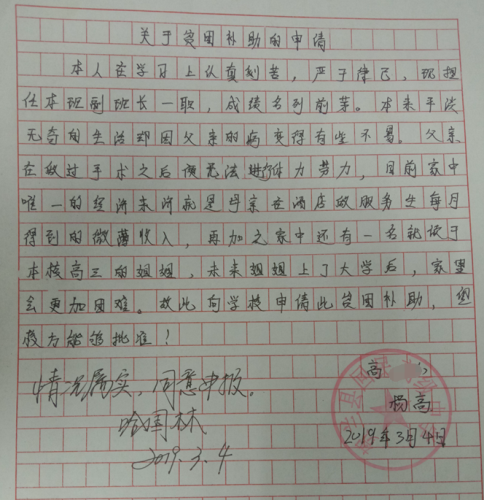 关于贫困补助的申请
本人在学习上认真刻苦，严于律己，现担
任本班副班长一职，成绩名列前茅。本来平淡
无奇的生活却因父亲的病变得有些不易。父亲
在做过手术之后便无法进行体力劳力，目前家中
唯一的经济来源就是母亲在酒店做服务生每月
得到的微薄收入，再加之家中还有一名就读于
本校高三的姐姐，未来姐姐上了大学后，家里
会更加困难。故此向学校申请此贫困补助，望
校方能够批准！
情况属实，同意申报。
高
杨高
2019年3月4日
2019.3.4